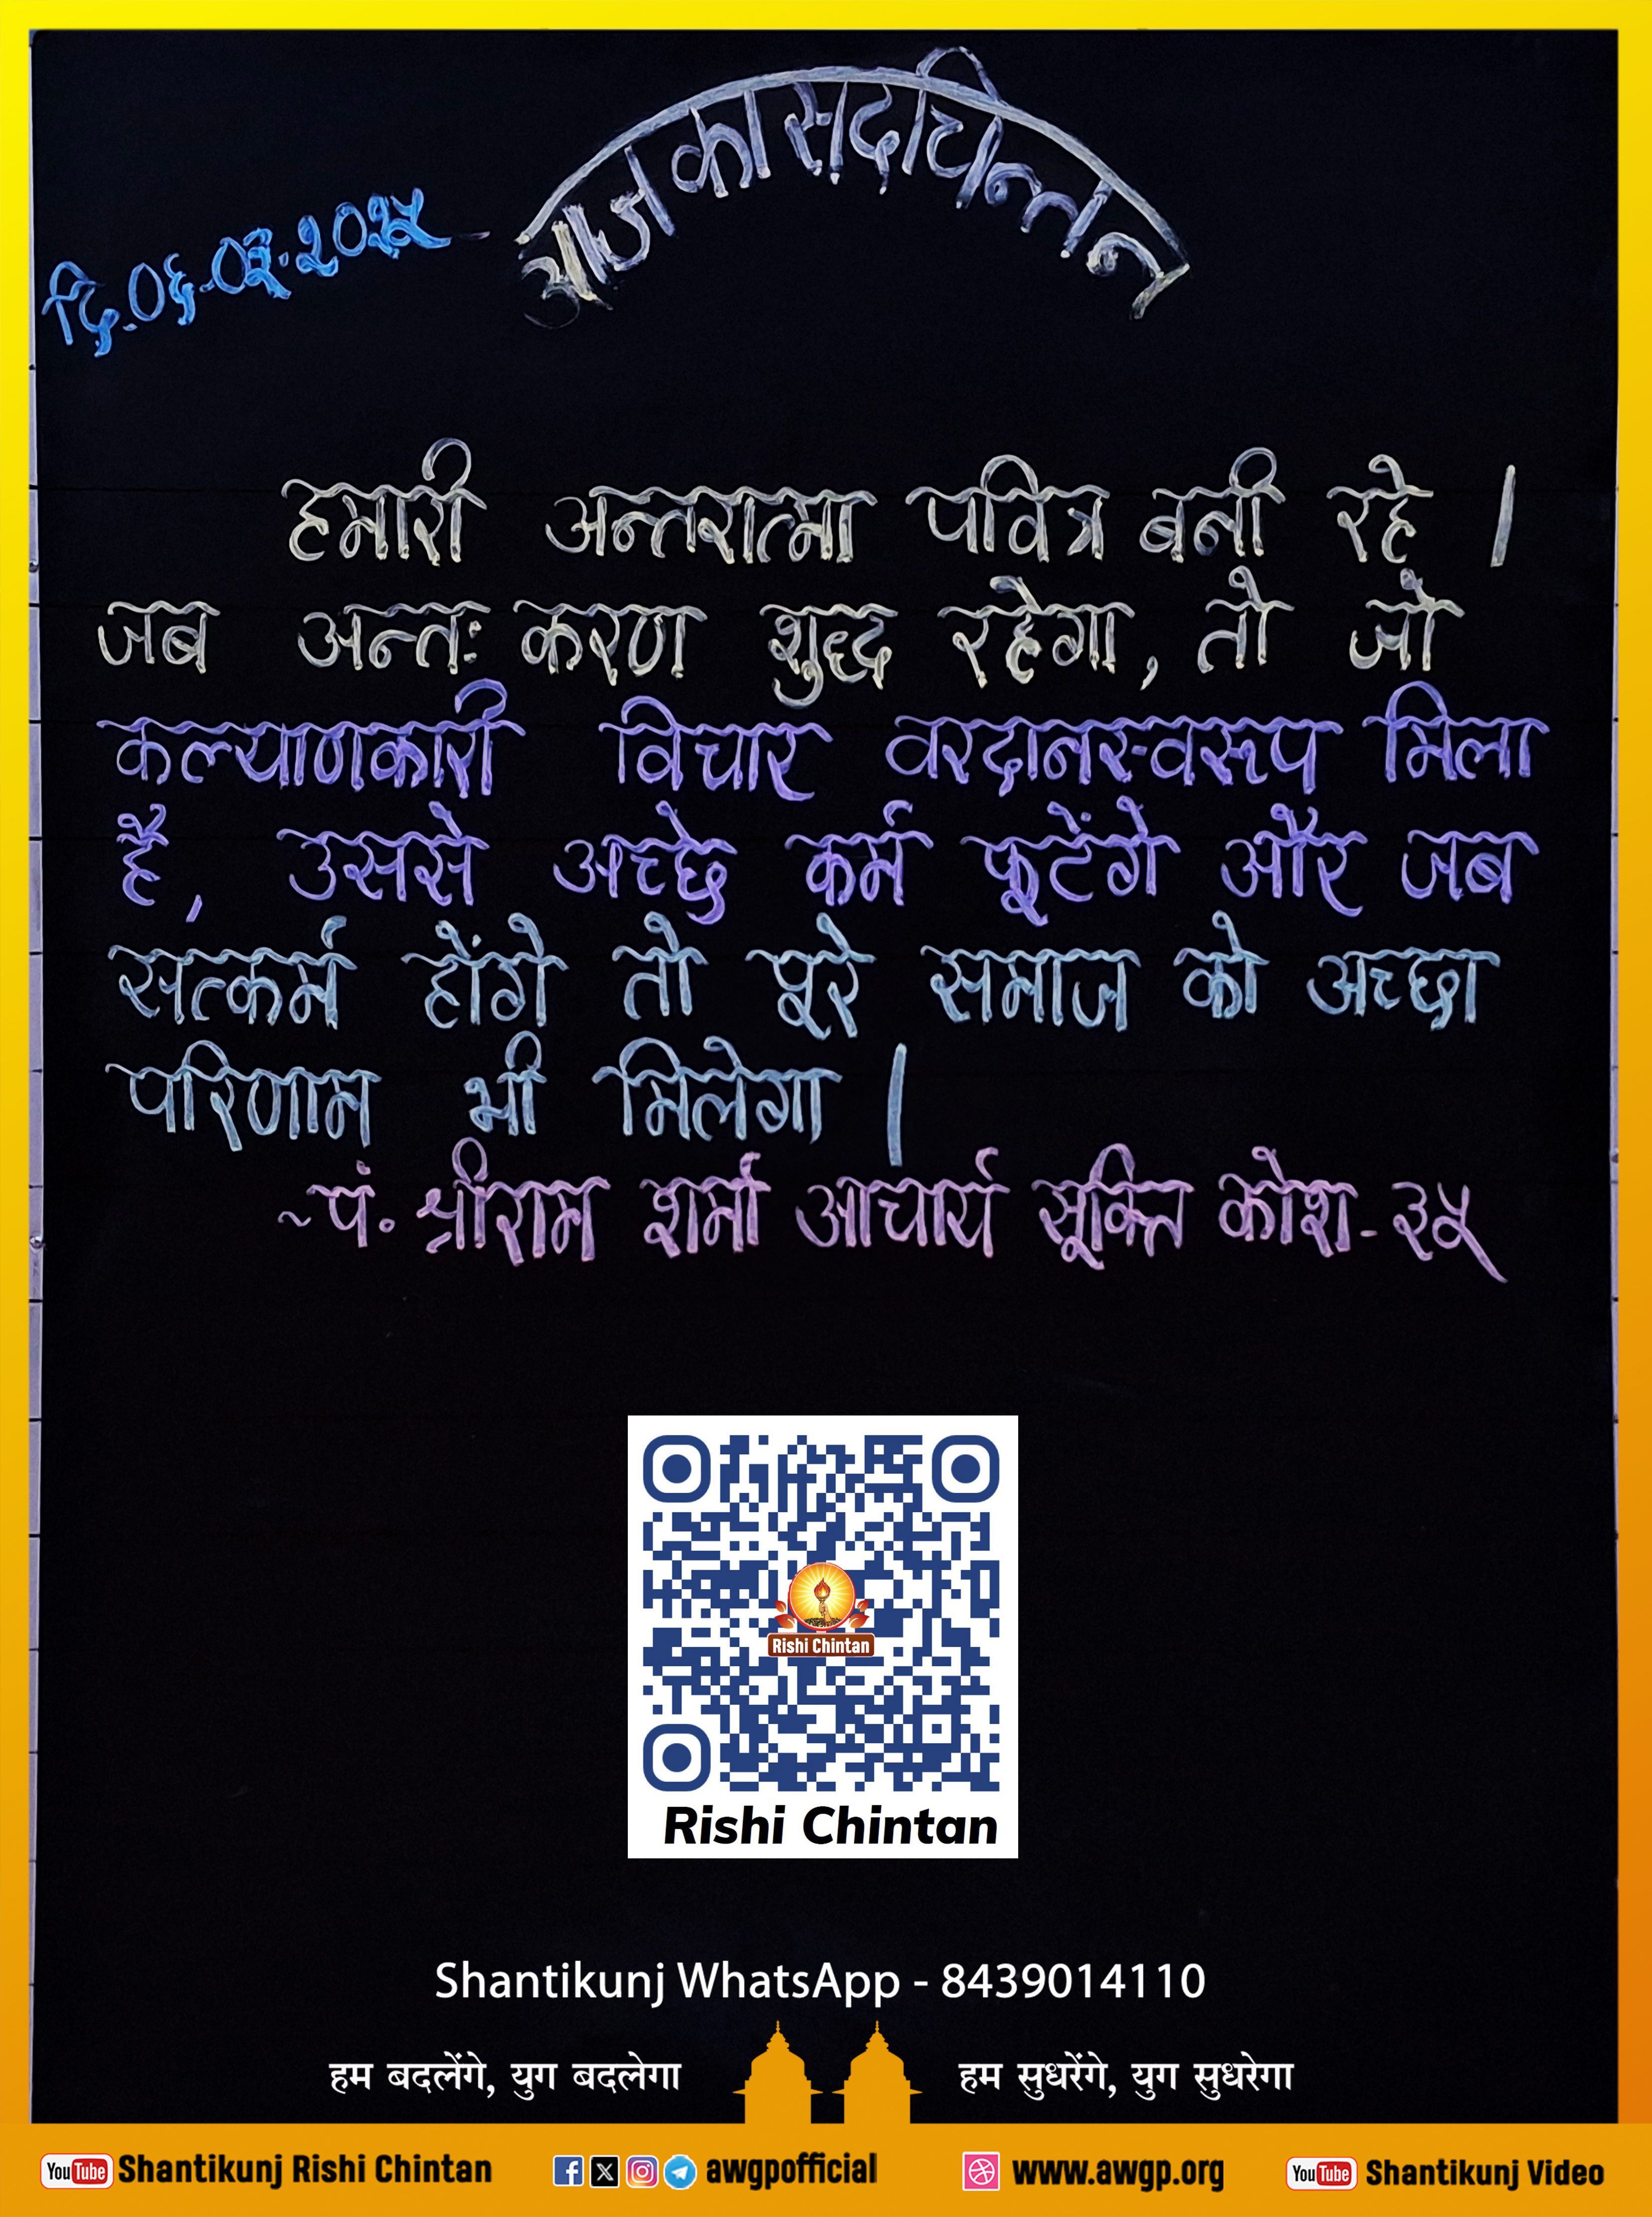 आज का सदचिन्तन
दि.०६-०३-२०२५
हमारी अन्तरात्मा पवित्र बनी रहे।
जब अन्तः करण शुद्ध रहेगा, तो जो
कल्याणकारी विचार वरदानस्वरूप मिला
है, उससे अच्छे कर्म फूटेंगे और जब
सत्कर्म होंगे तो पूरे समाज को अच्छा
परिणाम भी मिलेगा।
~पं. श्रीराम शर्मा आचार्य सूक्ति कोश-३५
Rishi Chintan
Rishi Chintan
Shantikunj WhatsApp - 8439014110
हम बदलेंगे, युग बदलेगा हम सुधरेंगे, युग सुधरेगा
YouTube Shantikunj Rishi Chintan awgpofficial www.awgp.org YouTube Shantikunj Video